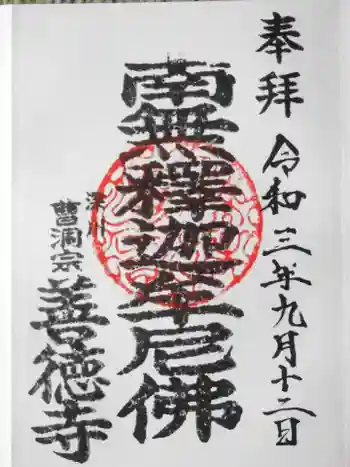 奉拜
令和三年九月十二日
南無釋迦牟尼佛
深川
曹洞宗
善徳寺